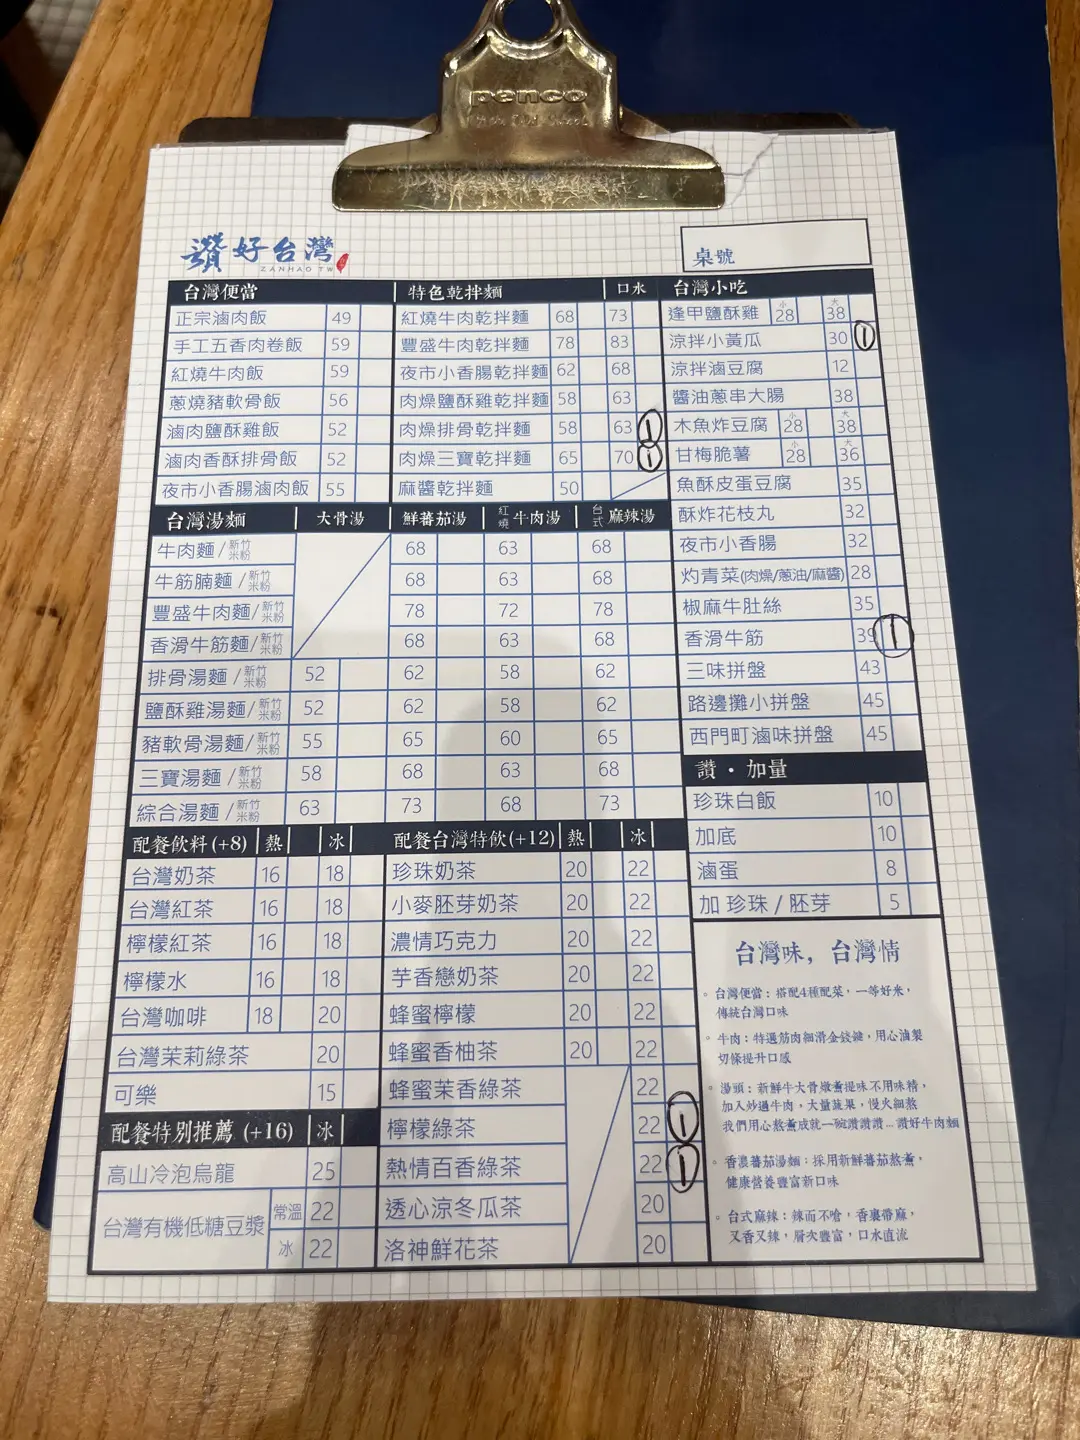 penco
讚好台灣
ZANHAO TW
桌號
台灣便當
正宗滷肉飯 49
手工五香肉卷飯 59
紅燒牛肉飯 59
蔥燒豬軟骨飯 56
滷肉鹽酥雞飯 52
滷肉香酥排骨飯 52
夜市小香腸滷肉飯 55
特色乾拌麵 口水
紅燒牛肉乾拌麵 68 73
豐盛牛肉乾拌麵 78 83
夜市小香腸乾拌麵 62 68
肉燥鹽酥雞乾拌麵 58 63
肉燥排骨乾拌麵 58 63 1
肉燥三寶乾拌麵 65 70 1
麻醬乾拌麵 50
台灣小吃
逢甲鹽酥雞 小 28 大 38
涼拌小黃瓜 30 1
涼拌滷豆腐 12
醬油蔥串大腸 38
木魚炸豆腐 小 28 大 38
甘梅脆薯 小 28 大 36
魚酥皮蛋豆腐 35
酥炸花枝丸 32
夜市小香腸 32
灼青菜(肉燥/蔥油/麻醬) 28
椒麻牛肚絲 35
香滑牛筋 39 1
三味拼盤 43
路邊攤小拼盤 45
西門町滷味拼盤 45
台灣湯麵 大骨湯 鮮蕃茄湯 紅燒牛肉湯 台式麻辣湯
牛肉麵/新竹米粉 68 63 68
牛筋腩麵/新竹米粉 68 63 68
豐盛牛肉麵/新竹米粉 78 72 78
香滑牛筋麵/新竹米粉 68 63 68
排骨湯麵/新竹米粉 52 62 58 62
鹽酥雞湯麵/新竹米粉 52 62 58 62
豬軟骨湯麵/新竹米粉 55 65 60 65
三寶湯麵/新竹米粉 58 68 63 68
綜合湯麵/新竹米粉 63 73 68 73
讚・加量
珍珠白飯 10
加底 10
滷蛋 8
加 珍珠 / 胚芽 5
配餐飲料(+8) 熱 冰
台灣奶茶 16 18
台灣紅茶 16 18
檸檬紅茶 16 18
檸檬水 16 18
台灣咖啡 18 20
台灣茉莉綠茶 20
可樂 15
配餐特別推薦 (+16) 冰
高山冷泡烏龍 25
台灣有機低糖豆漿 常溫 22
冰 22
配餐台灣特飲(+12) 熱 冰
珍珠奶茶 20 22
小麥胚芽奶茶 20 22
濃情巧克力 20 22
芋香戀奶茶 20 22
蜂蜜檸檬 20 22
蜂蜜香柚茶 20 22
蜂蜜茉香綠茶 22
檸檬綠茶 22 1
熱情百香綠茶 22 1
透心涼冬瓜茶 20
洛神鮮花茶 20
台灣味，台灣情
。台灣便當：搭配4種配菜，一等好米，
傳統台灣口味
。牛肉：特選筋肉細滑金錢𦟌，用心滷製
切條提升口感
。湯頭：新鮮牛大骨燉煮提味不用味精，
加入炒過牛肉，大量蔬果，慢火細熬
我們用心熬煮成就一碗讚讚讚...讚好牛肉麵
。香濃蕃茄湯麵：採用新鮮蕃茄熬煮，
健康營養豐富新口味
。台式麻辣：辣而不嗆，香裏帶麻，
又香又辣，層次豐富，口水直流